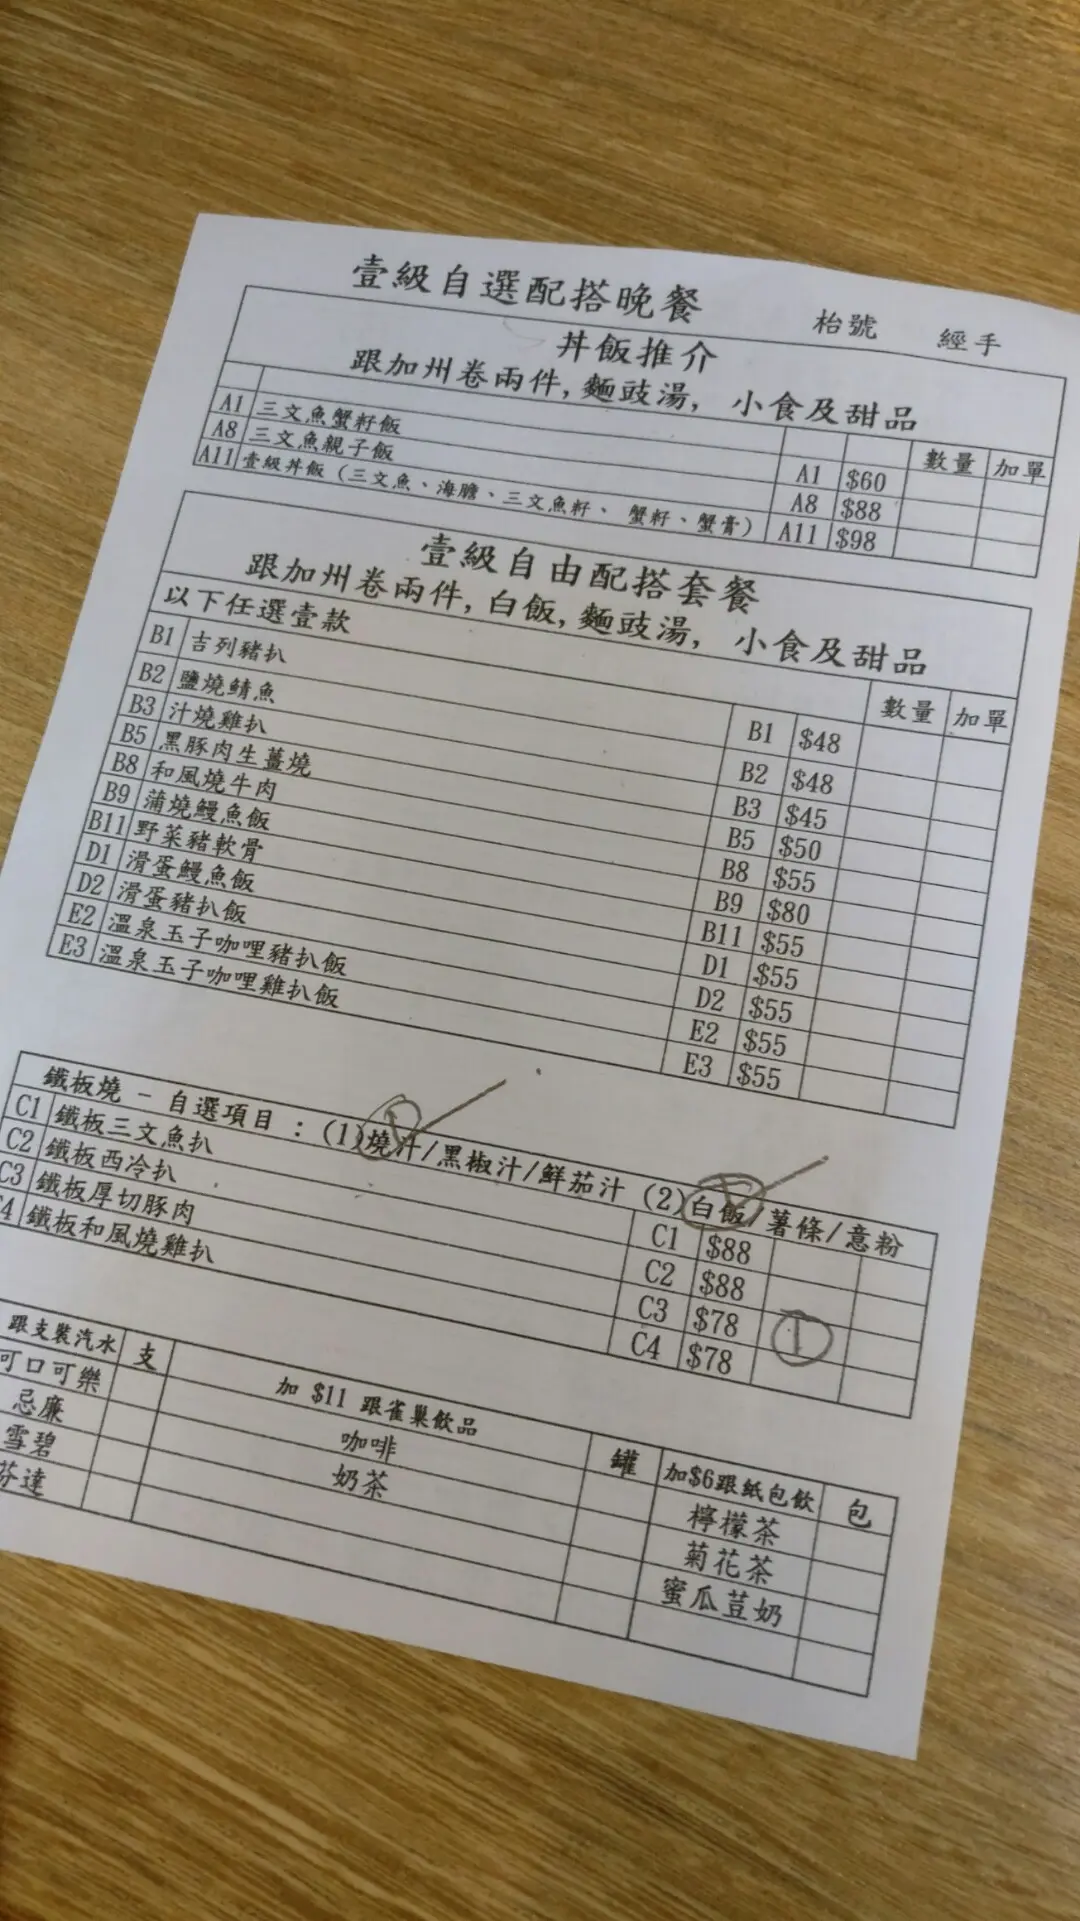 壹級自選配搭晚餐 枱號 經手
丼飯推介
跟加州卷兩件, 麵豉湯, 小食及甜品
數量 加單
A1 三文魚蟹籽飯 A1 $60
A8 三文魚親子飯 A8 $88
A11 壹級丼飯 (三文魚、海膽、三文魚籽、蟹籽、蟹膏) A11 $98
壹級自由配搭套餐
跟加州卷兩件, 白飯, 麵豉湯, 小食及甜品
以下任選壹款 數量 加單
B1 吉列豬扒 B1 $48
B2 鹽燒鯖魚 B2 $48
B3 汁燒雞扒 B3 $45
B5 黑豚肉生薑燒 B5 $50
B8 和風燒牛肉 B8 $55
B9 蒲燒鰻魚飯 B9 $80
B11 野菜豬軟骨 B11 $55
D1 滑蛋鰻魚飯 D1 $55
D2 滑蛋豬扒飯 D2 $55
E2 溫泉玉子咖哩豬扒飯 E2 $55
E3 溫泉玉子咖哩雞扒飯 E3 $55
鐵板燒 - 自選項目 : (1)燒汁/黑椒汁/鮮茄汁 (2)白飯/薯條/意粉
C1 鐵板三文魚扒 C1 $88
C2 鐵板西冷扒 C2 $88
C3 鐵板厚切豚肉 C3 $78 1
C4 鐵板和風燒雞扒 C4 $78
跟支裝汽水 支 加 $11 跟雀巢飲品 罐 加$6跟紙包飲 包
可口可樂 咖啡 檸檬茶
忌廉 奶茶 菊花茶
雪碧 蜜瓜荳奶
芬達